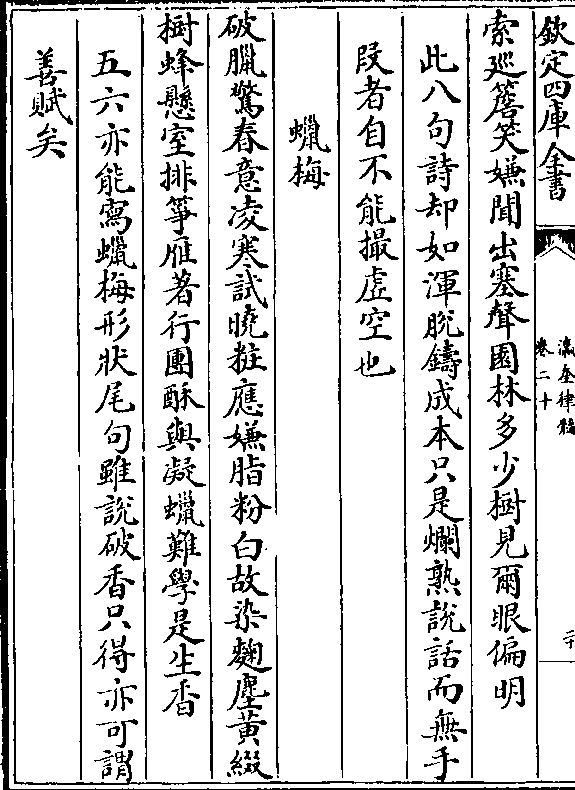 欽定四庫全書
瀛奎律髓
卷二十
索巡簷笑嫌聞出塞聲園林多少樹見爾眼偏明
此八句詩却如渾脫鑄成本只是爛熟說話而無手
段者自不能撮虛空也
蠟梅
破臘驚春意凌寒試曉粧應嫌脂粉白故染麴塵黃綴
樹蜂懸室排箏雁著行團酥與凝蠟難學是生香
五六亦能寫蠟梅形狀尾句雖說破香只得亦可謂
善賦矣